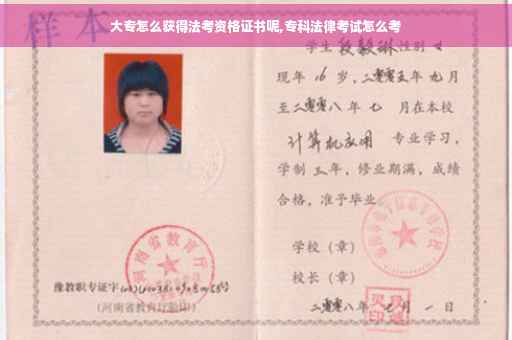 大专怎么获得法考资格证书呢,专科法律考试怎么考
样本
学生 段毅琳 性别 女
现年 16 岁，二零零五年 九月
至二零零八年 七 月在本校
计算机应用 专业学习，
学制 三年，修业期满，成绩
合格，准予毕业
学校（章）
校长（章）
二零零八年 月 一 日
河南省教育厅
豫教职专证字
（河南省教育厅验印）